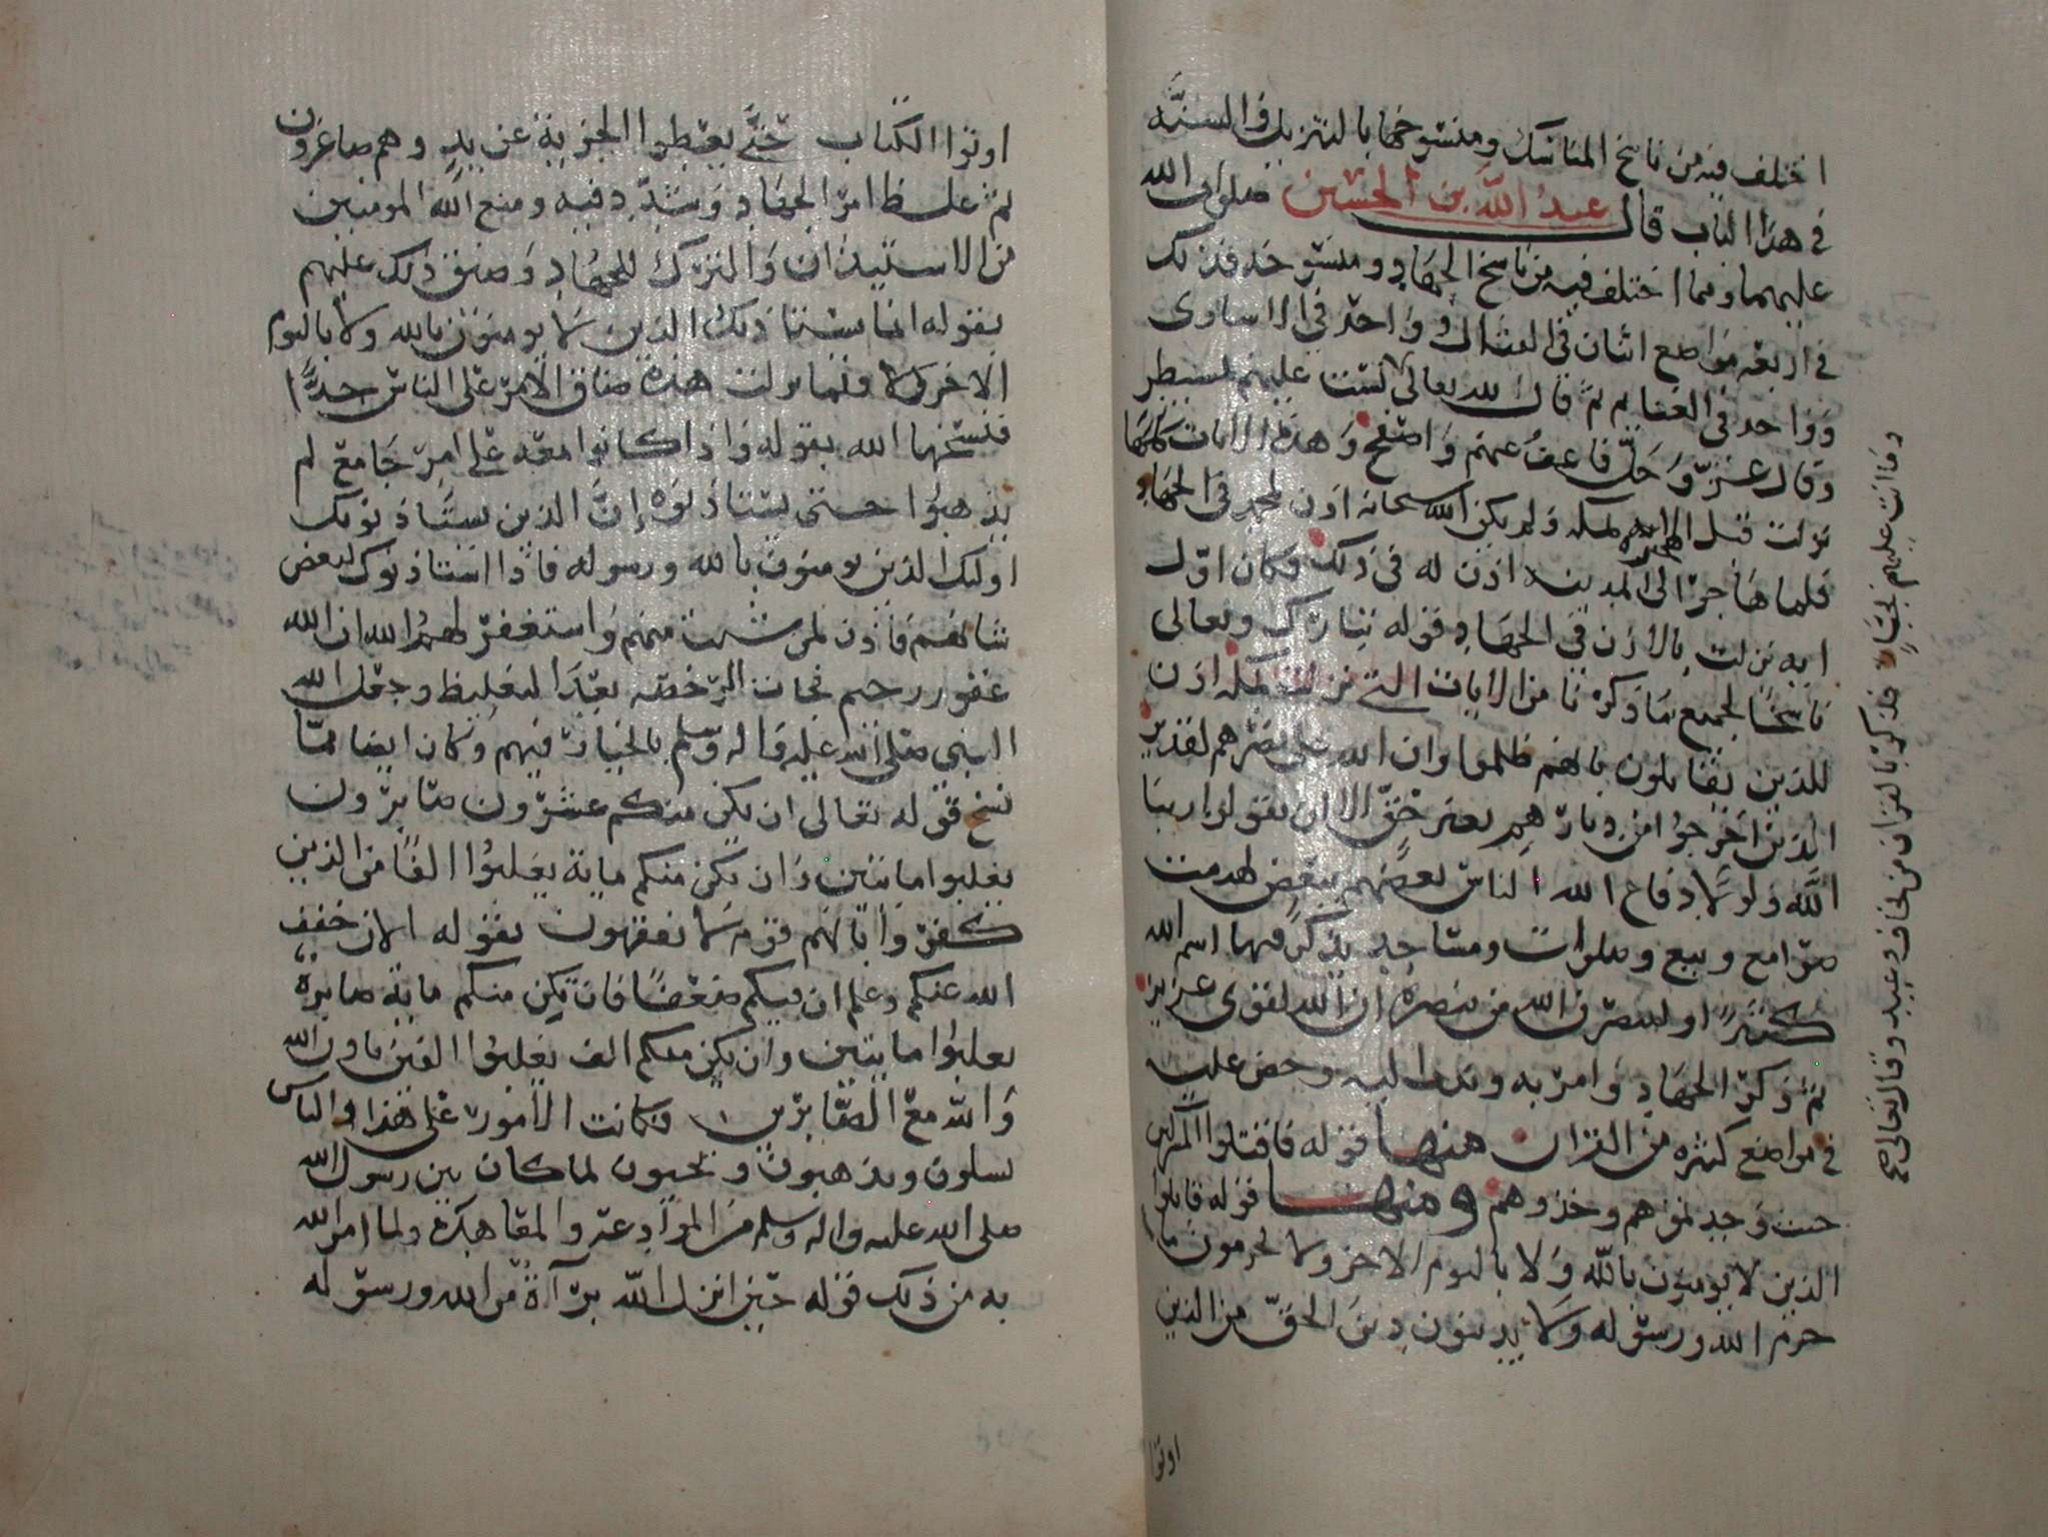 اختلف فيه من ناسخ المناسك ومنسوخها بالتنزيل والسنة
في هذا الباب قال عبد الله بن الحسين صلوات الله
عليهما ومما اختلف فيه من ناسخ الجهاد ومنسوخه فذلك
في اربعه مواضع اثنان في القتال وواحد في الاسارى
وواحد في الغنايم ثم قال الله تعالى لست عليهم بمسيطر
وقال عز وجل فاعف عنهم واصفح وهذه الايات كلها
نزلت قبل الهجره بمكه ولم يكن الله سبحانه اذن لمحمد في الجهاد
فلما هاجر الى المدينه اذن له في ذلك فكان اول
ايه نزلت بالاذن في الجهاد قوله تبارك وتعالى
ناسخا لجميع ما ذكرنا من الايات التي نزلت بمكه اذن
للذين يقاتلون بانهم ظلموا وان الله على نصرهم لقدير
الذين اخرجوا من ديارهم بغير حق الا ان يقولوا ربنا
الله ولولا دفاع الله الناس بعضهم ببعض لهدمت
صوامع وبيع وصلوات ومساجد يذكر فيها اسم الله
كثيرا ولينصرن الله من ينصره ان الله لقوي عزيز
ثم ذكر الجهاد وامر به وندب اليه وحض عليه
في مواضع كثيره من القران منها قوله فاقتلوا المشركين
حيث وجدتموهم وخذوهم ومنها قوله قاتلوا
الذين لا يومنون بالله ولا باليوم الاخر ولا يحرمون ما
حرم الله ورسوله ولا يدينون دين الحق من الذين
اوتوا
وما انت عليهم بجبار فذكر بالقران من يخاف وعيد وقال تعالى صح
اوتوا الكتاب حتى يعطوا الجزية عن يد وهم صاغرون
ثم غلظ امر الجهاد وشدد فيه ومنع الله المومنين
من الاستيذان والترك للجهاد وضيق ذلك عليهم
بقوله انما يستاذنك الذين لا يومنون بالله ولا باليوم
الاخر فلما نزلت هذه ضاق الامر على الناس جدا
فنسخها الله بقوله واذا كانوا معه على امر جامع لم
يذهبوا حتى يستاذنوه ان الذين يستاذنونك
اولئك الذين يومنون بالله ورسوله فاذا استاذنوك لبعض
شانهم فاذن لمن شئت منهم واستغفر لهم الله ان الله
غفور رحيم فجات الرخصه بعد التغليظ وجعل الله
النبي صلى الله عليه واله وسلم بالخيار فيهم وكان ايضا مما
نسخ قوله تعالى ان يكن منكم عشرون صابرون
يغلبوا مايتين وان يكن منكم ماية يغلبوا الفا من الذين
كفروا بانهم قوم لا يفقهون بقوله الان خفف
الله عنكم وعلم ان فيكم ضعفا فان يكن منكم ماية صابرة
يغلبوا مايتين وان يكن منكم الف يغلبوا الفين باذن الله
والله مع الصابرين وكانت الامور على هذا والناس
يسلون ويذهبون ويحبون لما كان بين رسول الله
صلى الله عليه واله وسلم من الموادعة والمعاهدة ولما امر الله
به من ذلك قوله حين انزل الله برآة من الله ورسوله